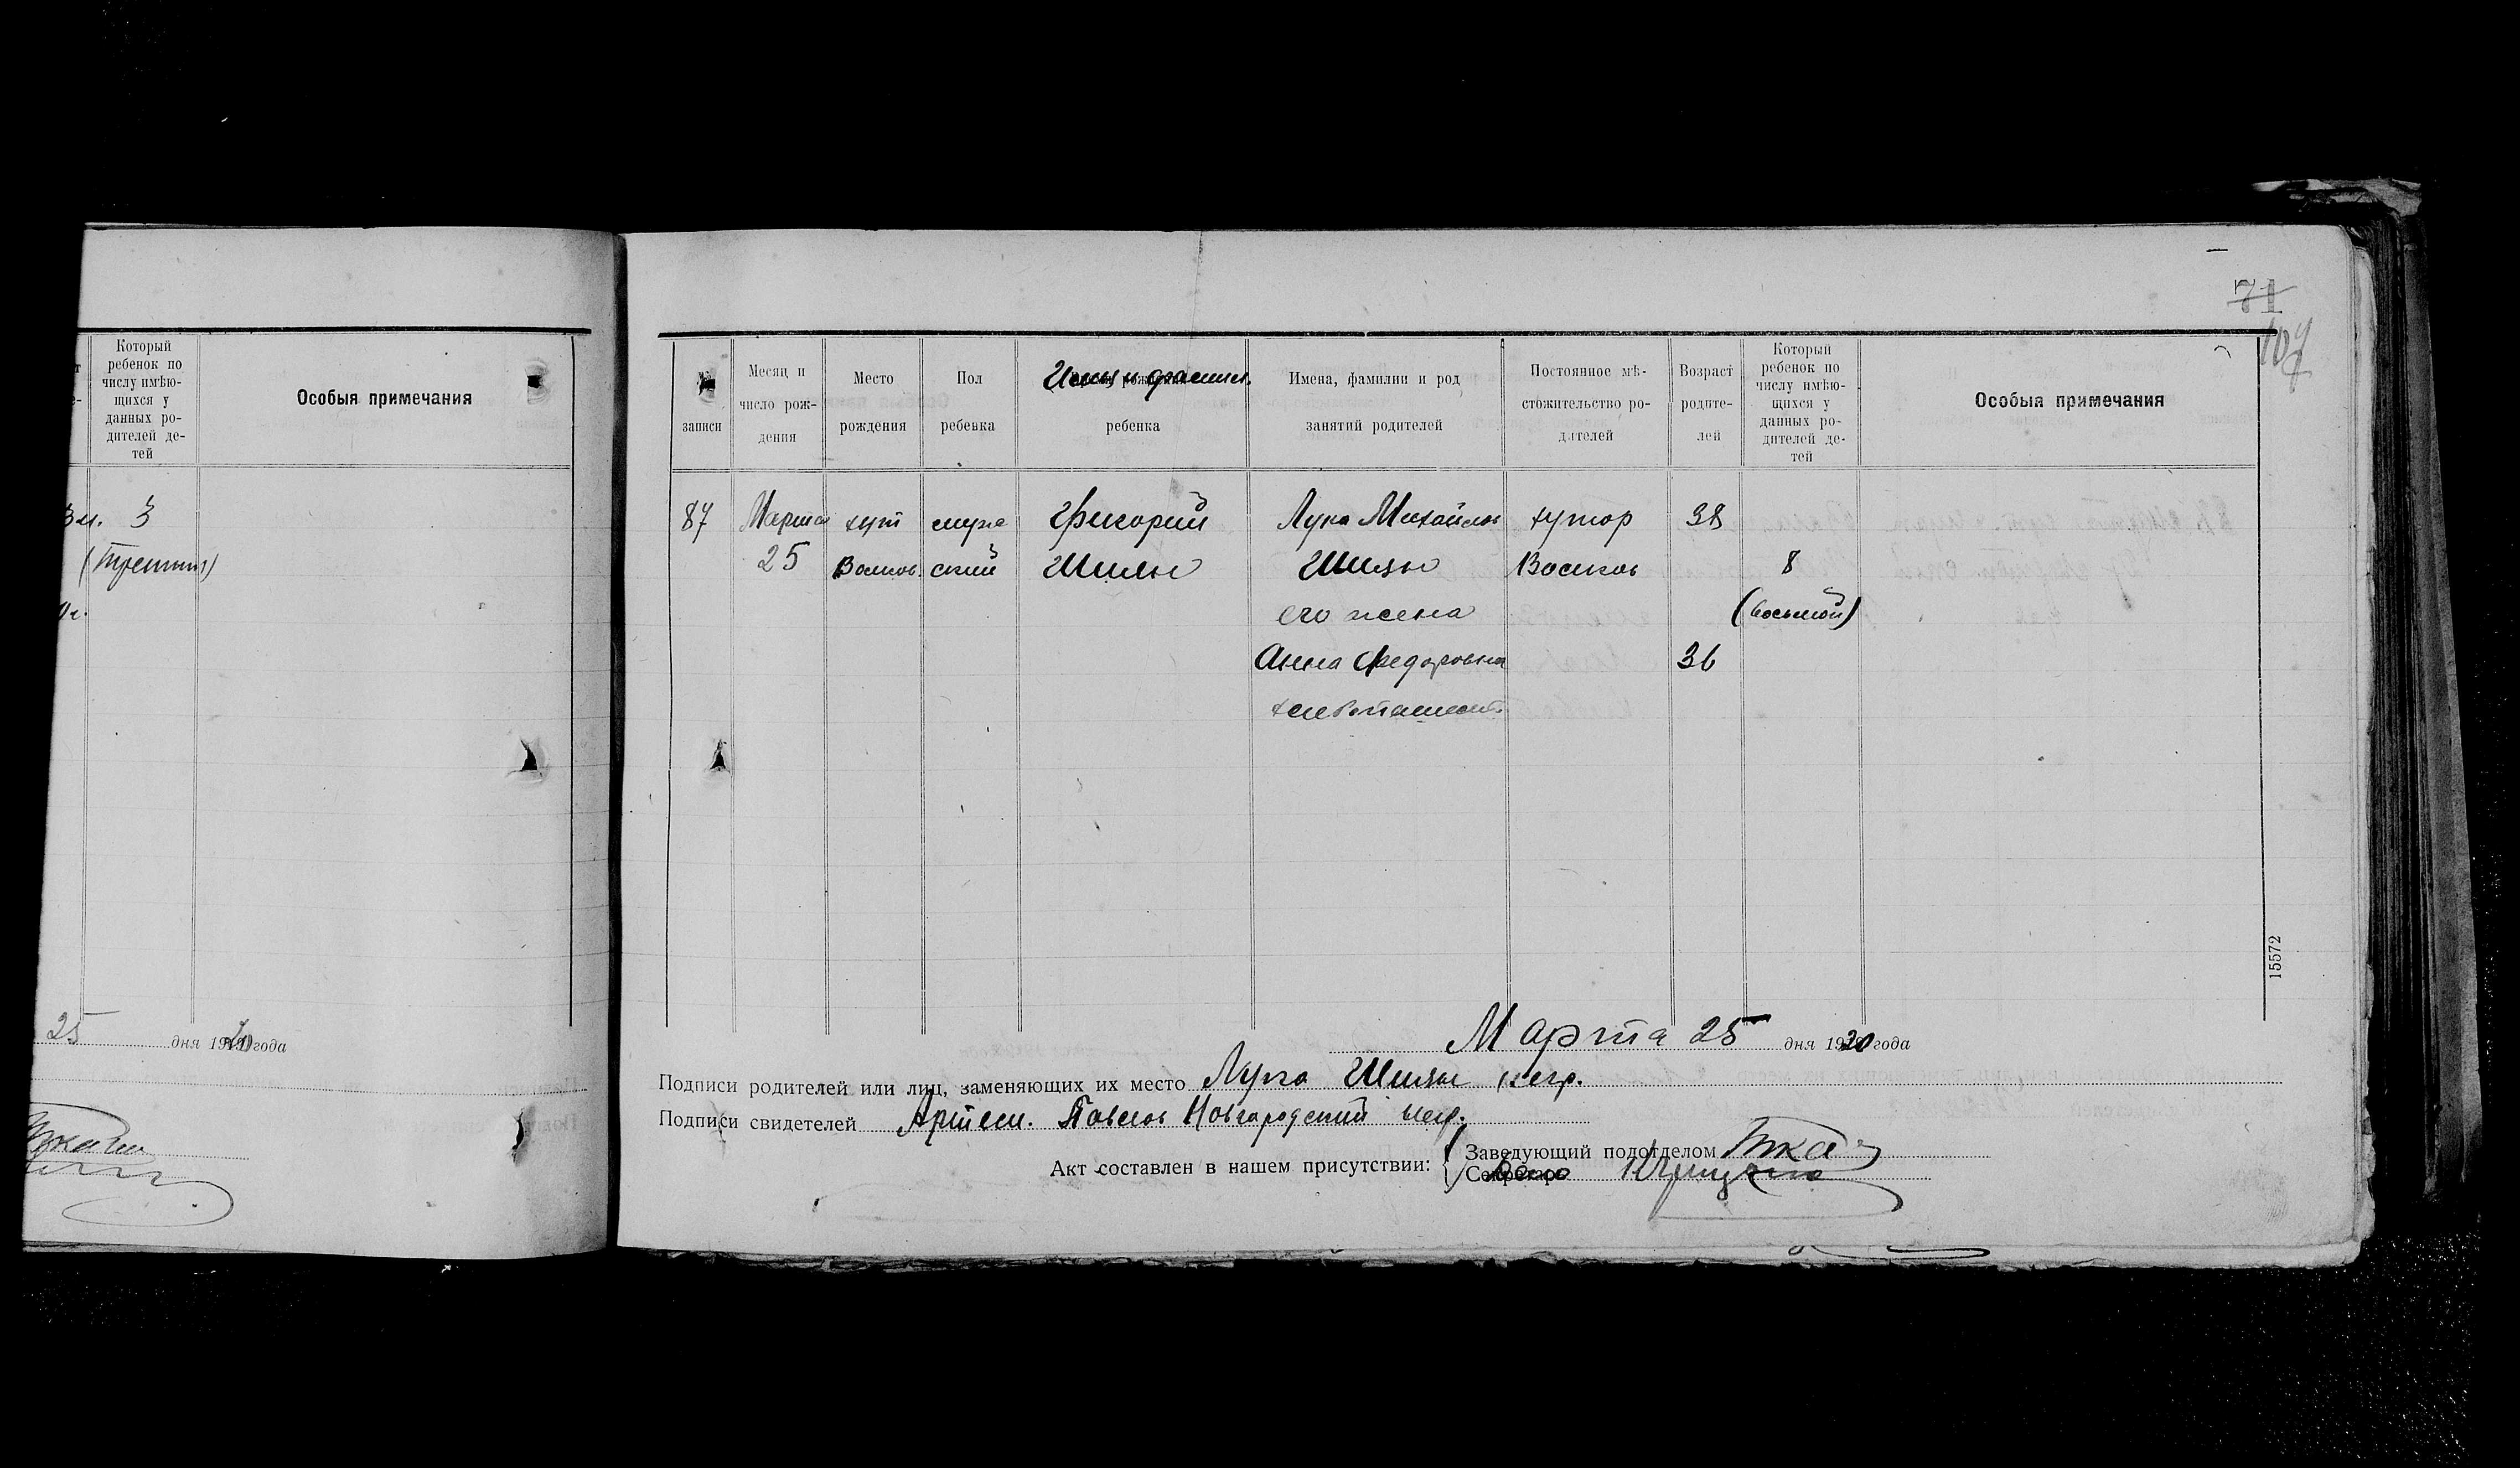 Который
ребенок по
числу имѣю-
щихся у
данных ро-
дителей де-
тей
Особыя примечания
3
(третий)
25 дня 1920 года
71
107
записи
Месяц и
число рож-
дения
Место
рождения
Пол
ребенка
Имя и фамилия
ребенка
Имена, фамилии и род
занятий родителей
Постоянное мѣ-
стожительство ро-
дителей
Возраст
родите-
лей
Который
ребенок по
числу имѣю-
щихся у
данных ро-
дителей де-
тей
Особыя примечания
87 Марта хут муже Григорий Лука Михайлов хутор 38
25 Волков. ский Шиян Шиян Волков 8
его жена (восьмой)
Анна Федоровна 36
хлебопашест.
15572
Марта 25 дня 1920 года
Подписи родителей или лиц, заменяющих их место Лука Шиян негр.
Подписи свидетелей Артем. Павлов Новгородский негр.
Акт составлен в нашем присутствии:
Заведующий подотделом
Секретарь